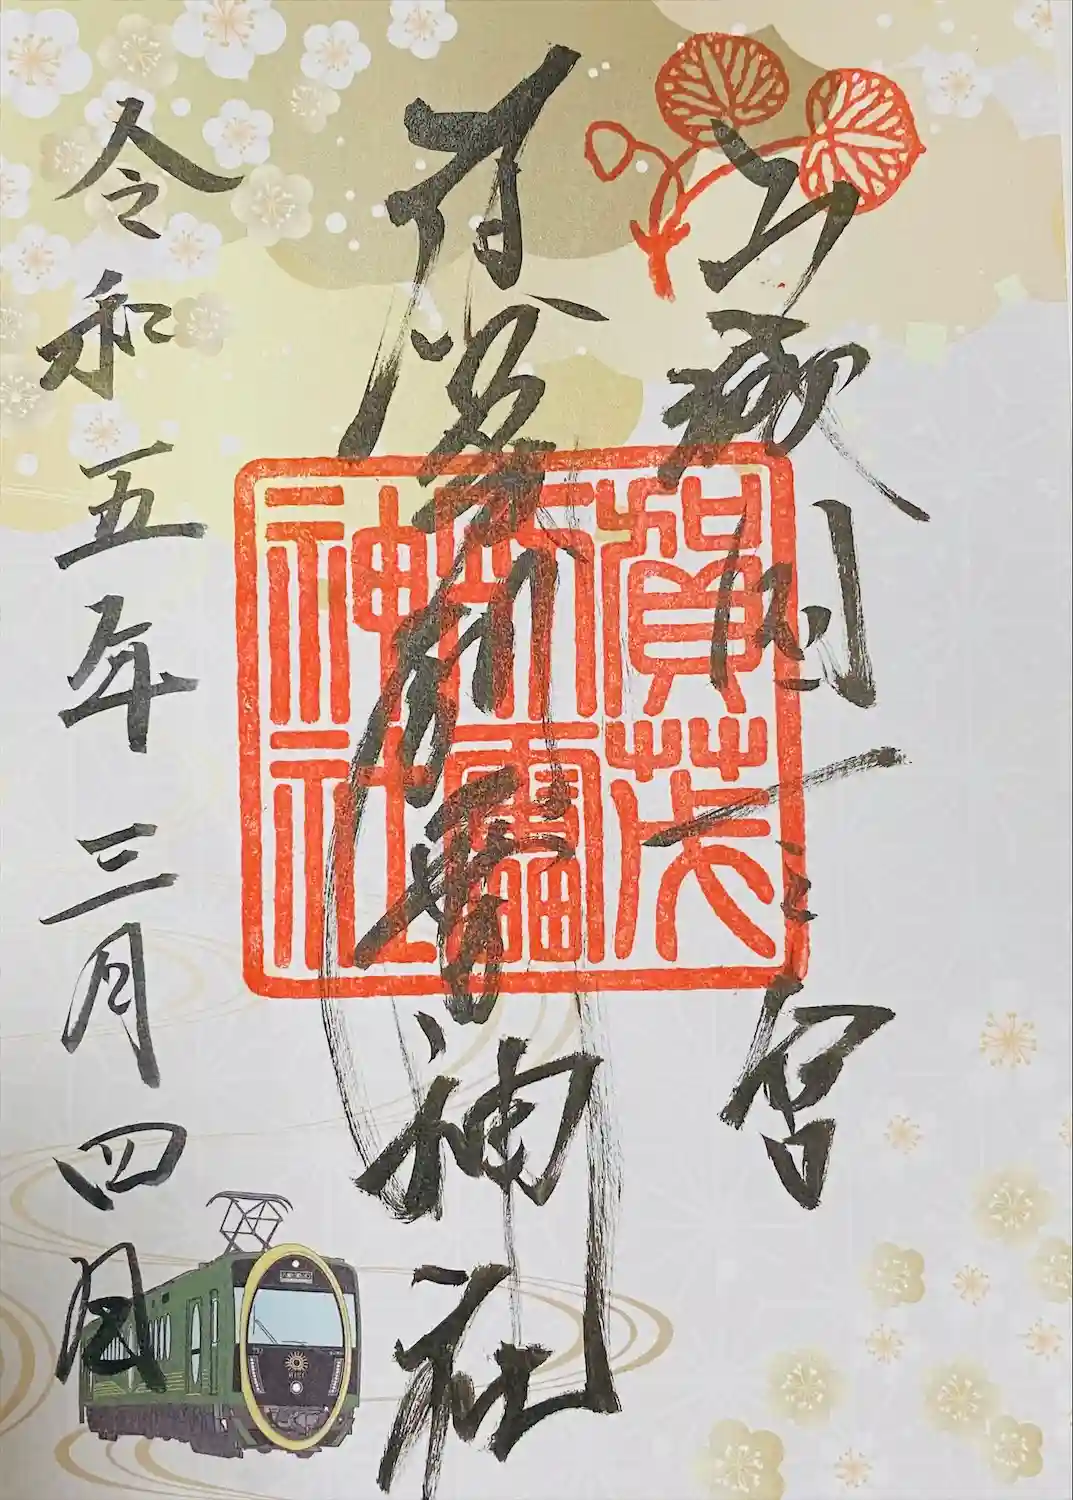 山城国一之宮
賀茂別雷神社
令和五年三月四日
賀茂
別雷
神社